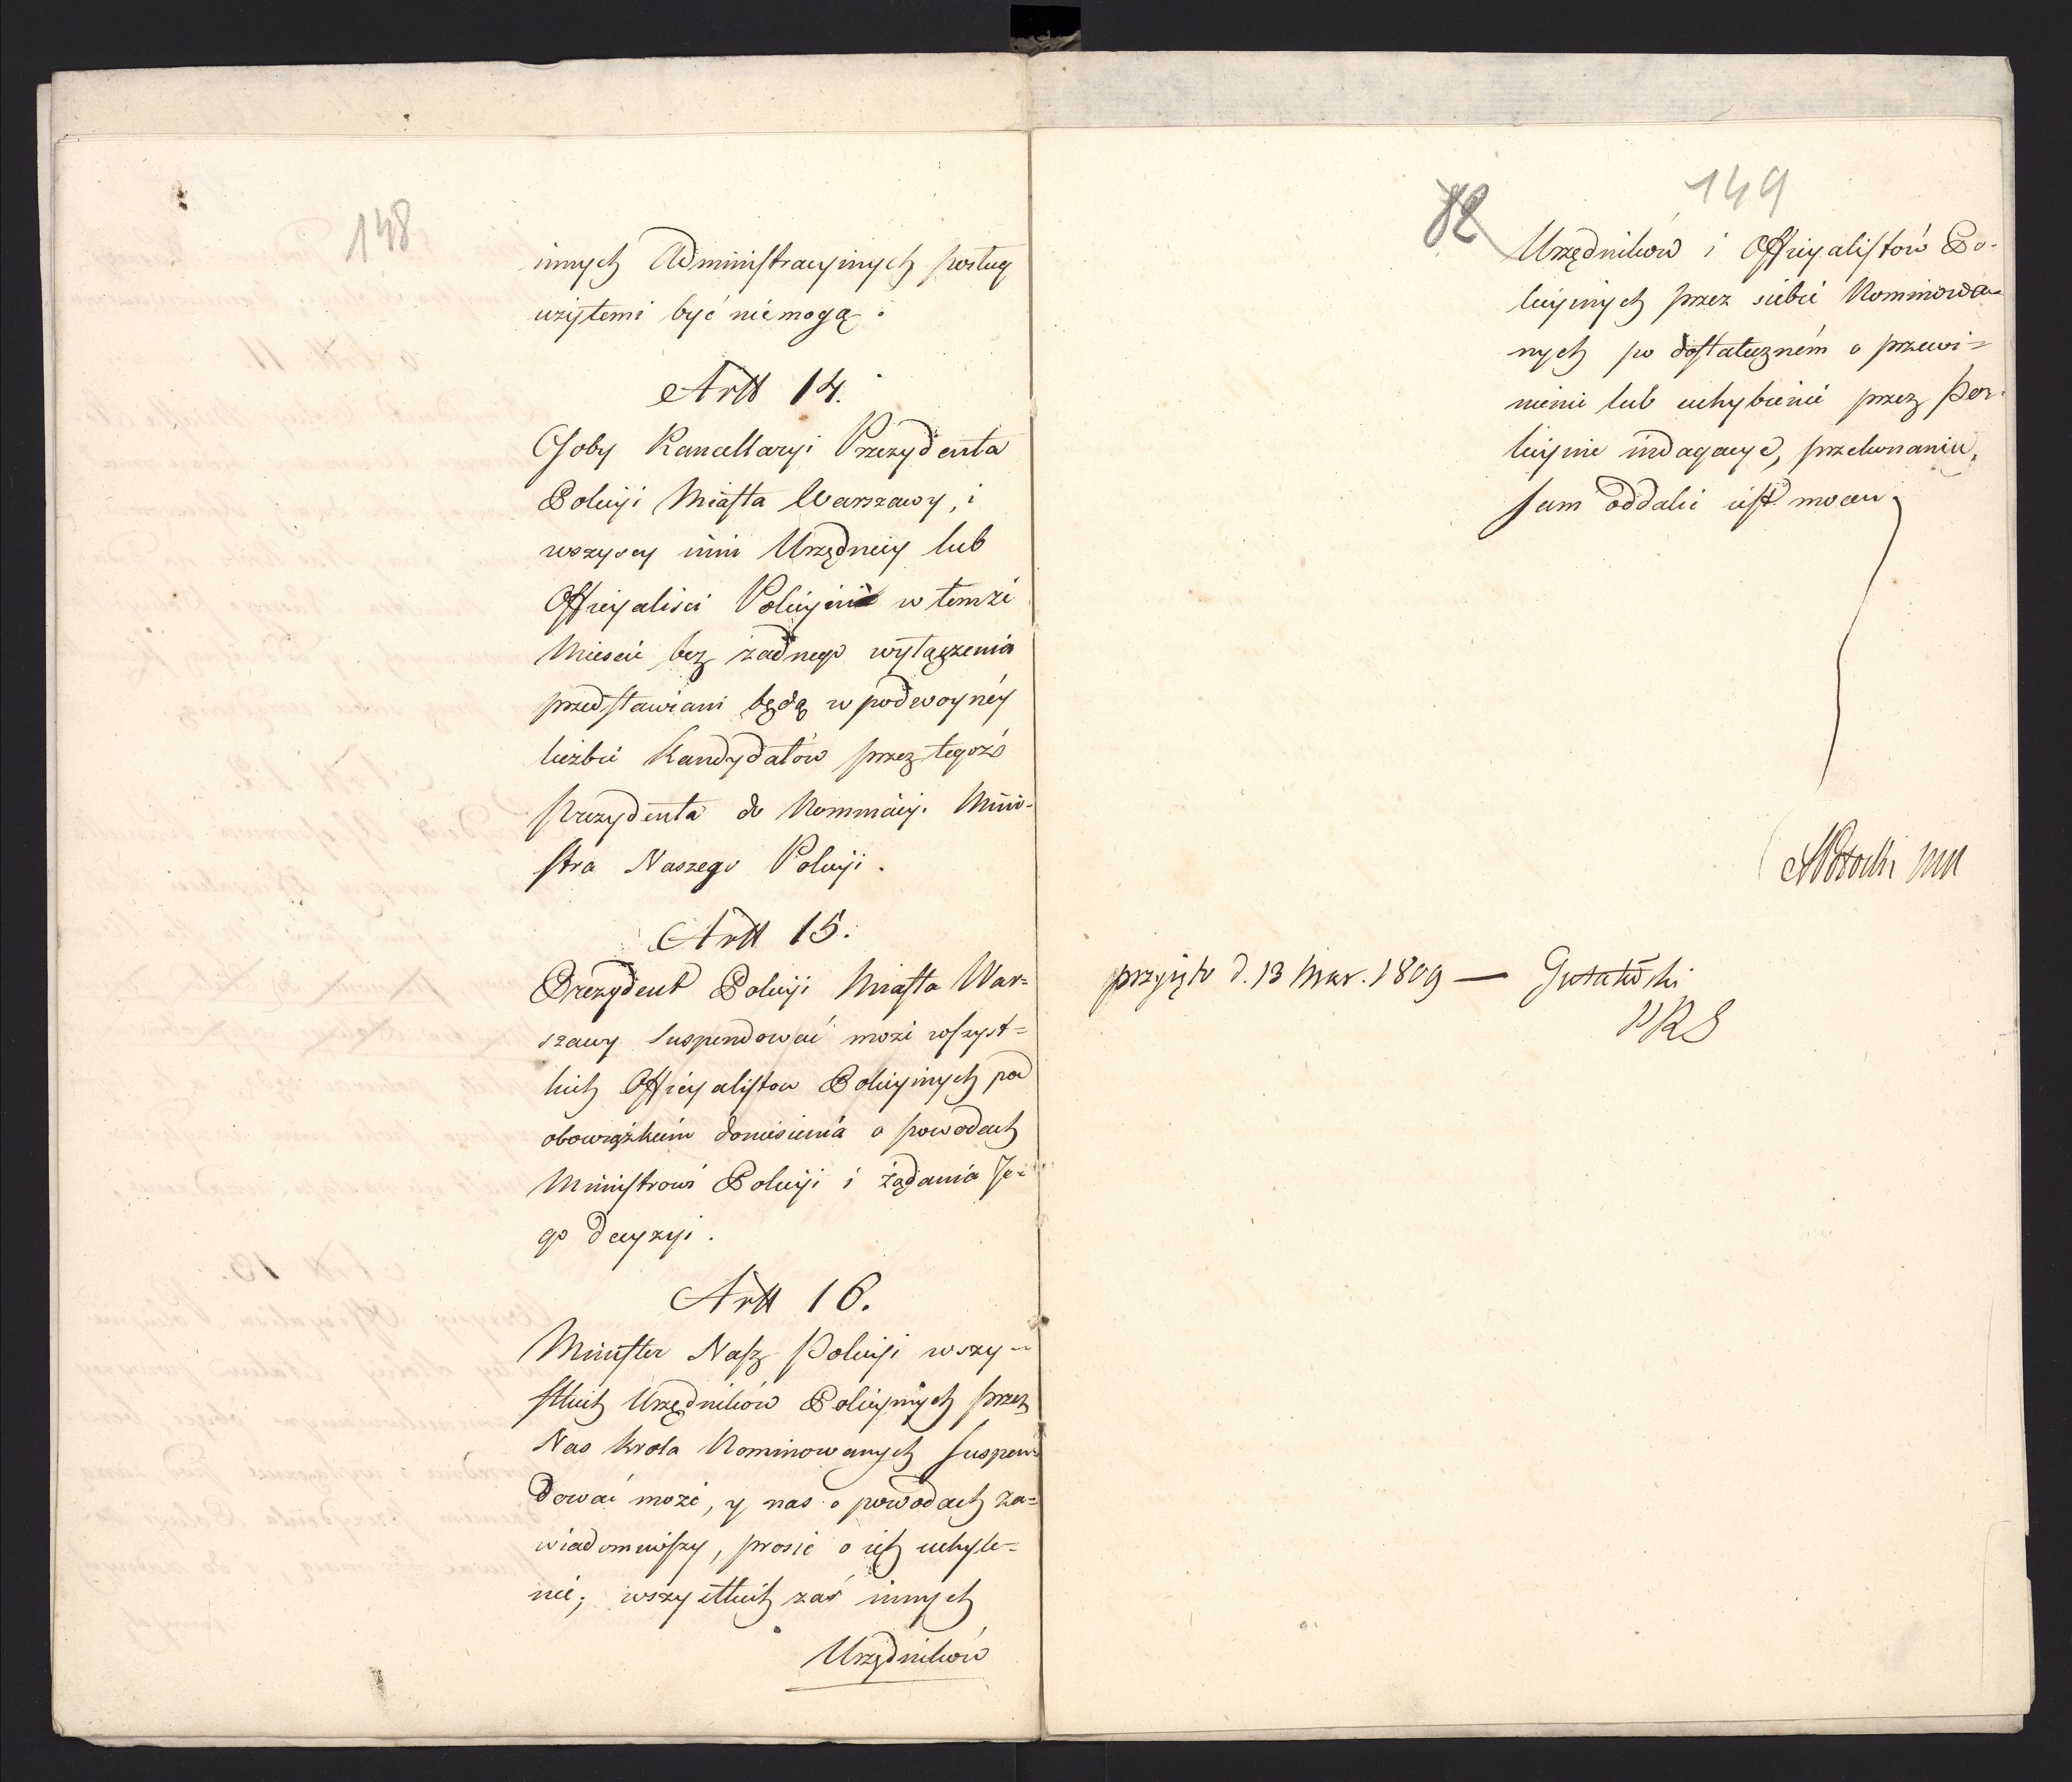 148
innych Administracyinych posług
użytemi być niemogą.
Artt 14.
Osoby Kancellaryi Prezydenta
Policyi Miasta Warszawy, i
wszyscy inni Urzędnicy lub
Officyalisci Policyini w temże
Miescie bez żadnego wyłączenia
przedstawiani będą w podwoyney
liczbie Kandydatów przez tegoż
Prezydenta do Nominacyi Mini-
stra Naszego Policyi.
Artt 15.
Prezydent Policyi Miasta War=
szawy suspendować może wszyst=
kich Officyalistow Policyinych pod
obowiązkiem doniesienia o powodach
Ministrowi Policyi i żądania Je=
go decyzyi.
Artt 16.
Minister Nasz Policyi wszy-
stkich Urzędników Policyinych przez
Nas Krola Nominowanych suspen=
dować może, y nas o powodach za=
wiadomiwszy, prosić o ich uchyle=
nie; wszystkich zaś innych
Urzędników
82
149
Urzędników i Officyalistów Po-
licyinych przez siebie Nominowa=
nych po dostateczném o przewi=
nienie lub uchybienie przez Po-
licyine indagacye, przekonaniu,
sam oddalić jest mocen.
Potocki
przyjęto d. 13 Mar. 1809 — Gutakowski
PRS